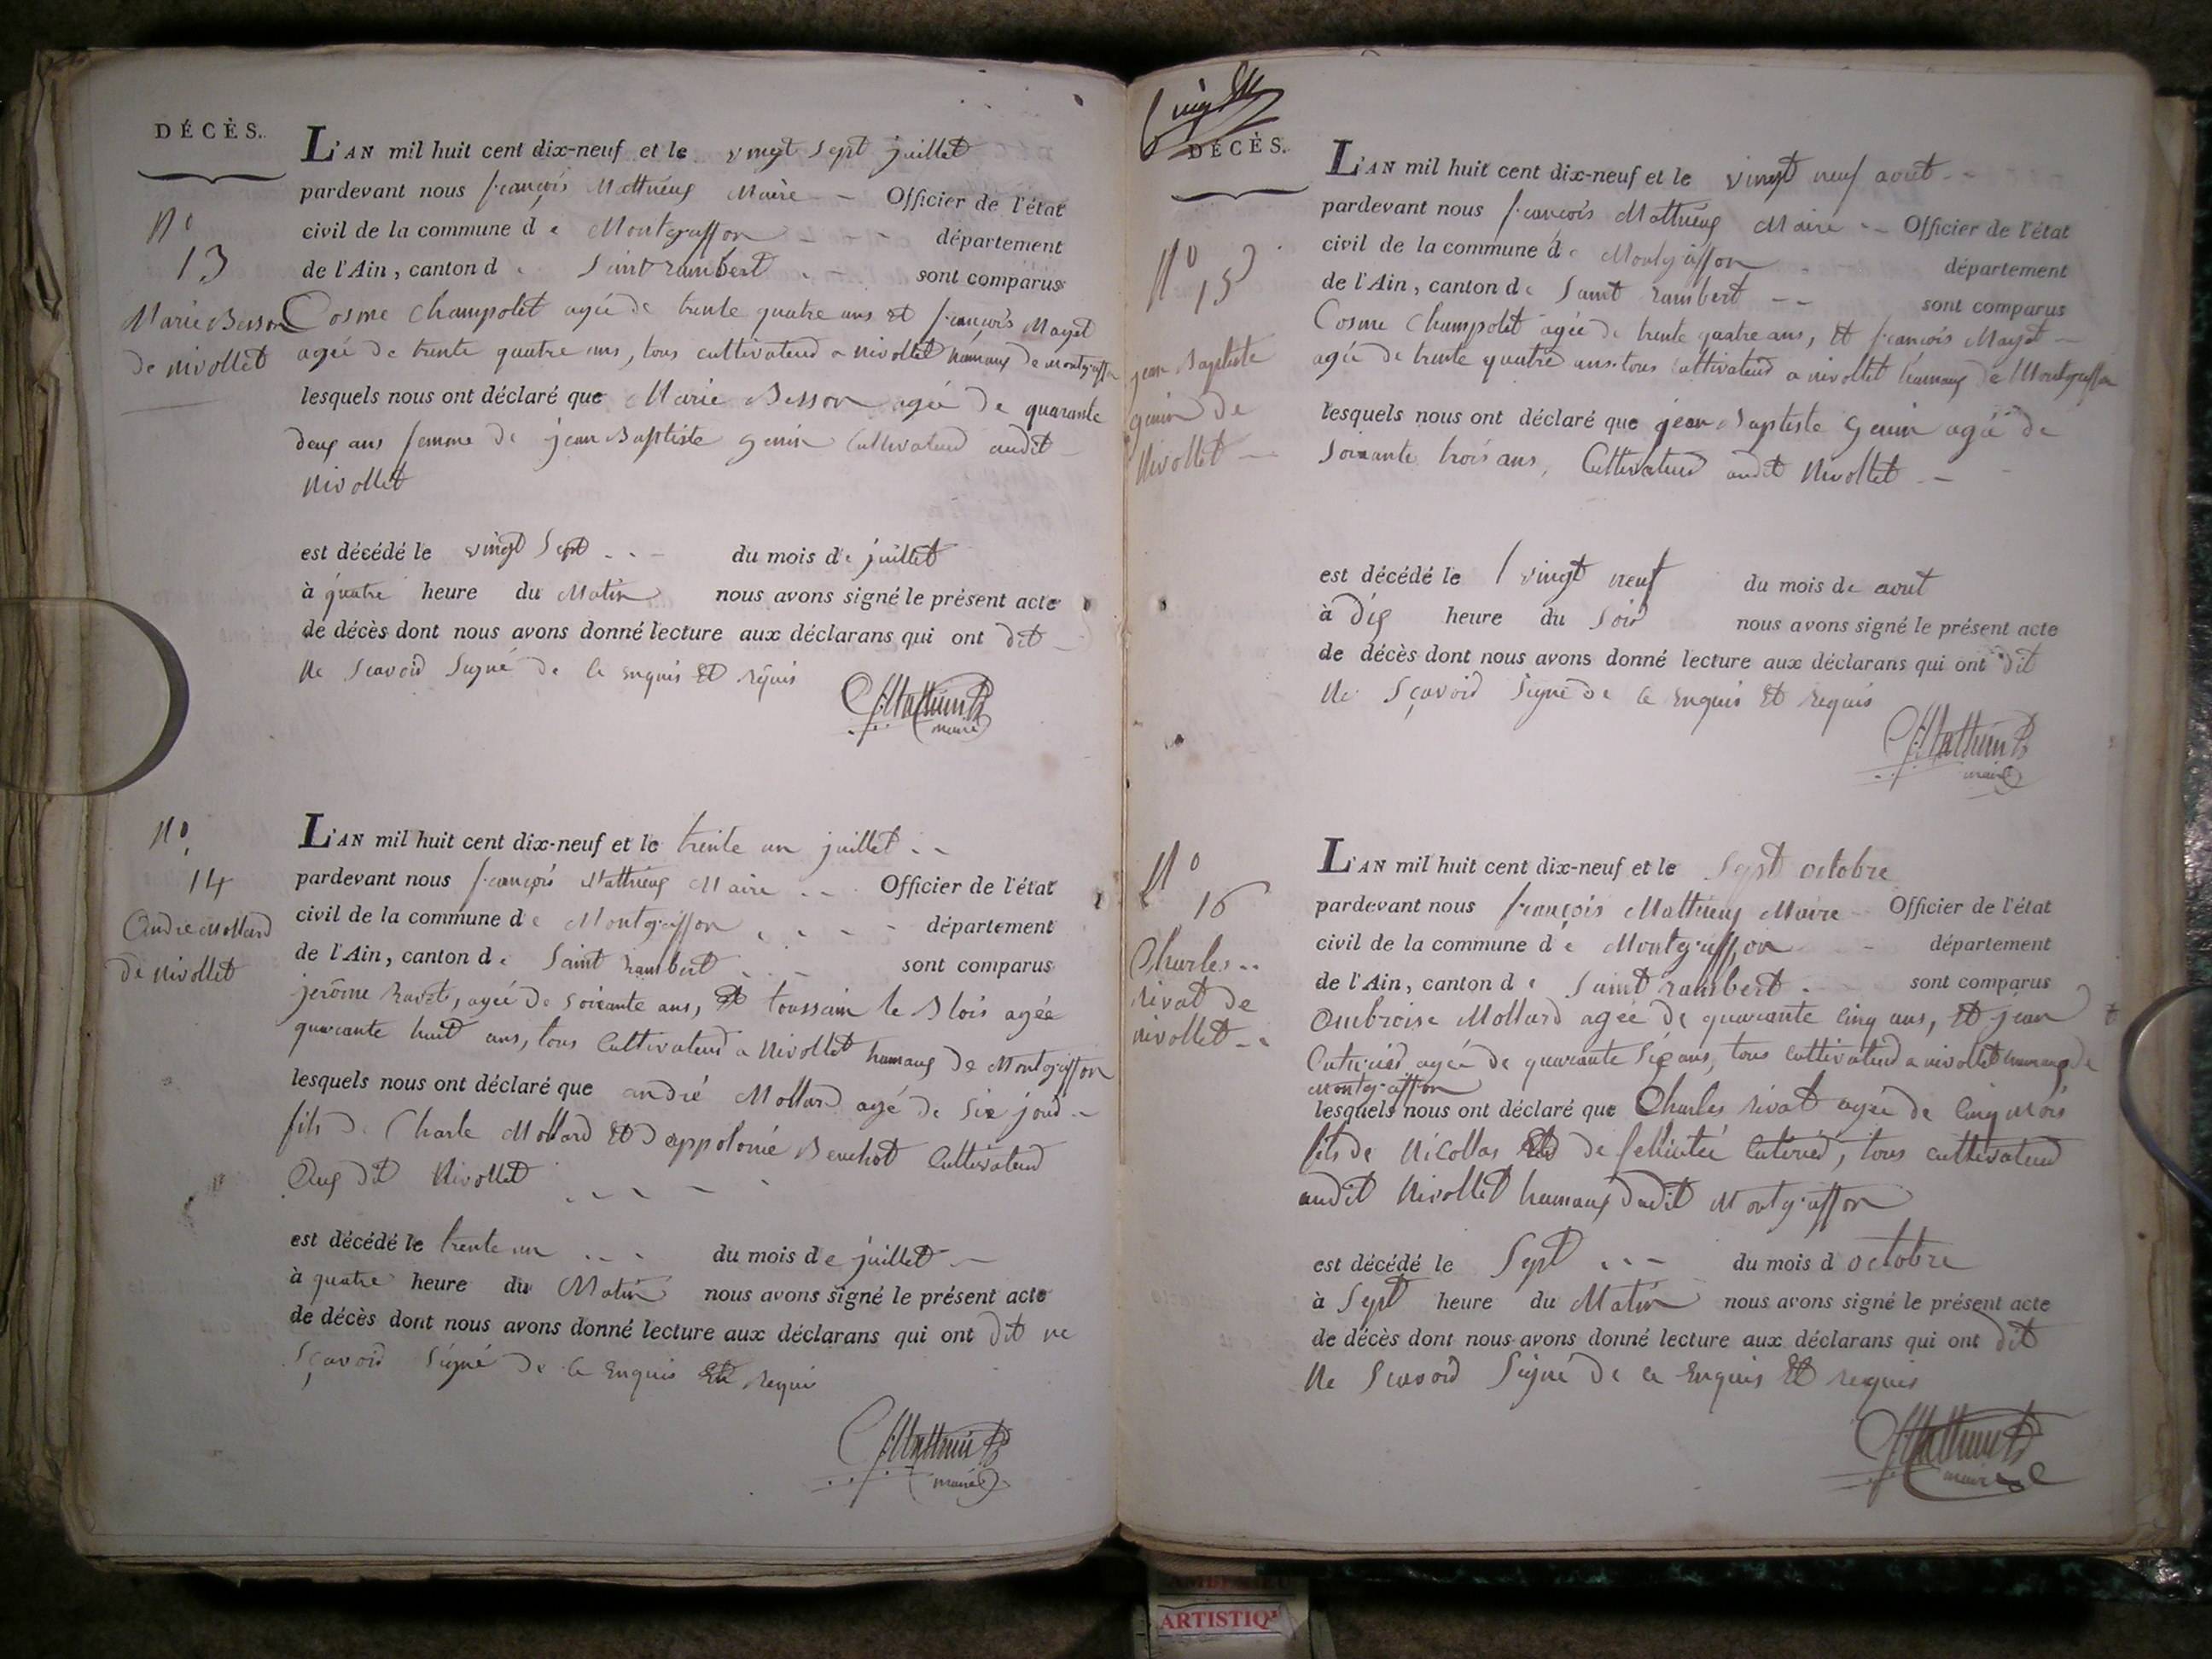 DÉCÈS.
L'AN mil huit cent dix-neuf et le vingt sept juillet
pardevant nous françois Mathieux Maire Officier de l'état
civil de la commune de Montgriffon département
de l'Ain, canton de Saint rambert sont comparus
N°
13
Marie Besson
de nivollet
Cosme Champolet agée de trente quatre ans et françois Mayet
agée de trente quatre ans, tous cultivateur a nivollet hamaux de montgriffon
lesquels nous ont déclaré que Marie Besson agée de quarante
deux ans femme de jean Baptiste genin Cultivateur audit
Nivollet
est décédé le vingt Sept du mois de juillet
à quatre heure du Matin nous avons signé le présent acte
de décès dont nous avons donné lecture aux déclarans qui ont dit
Ne Scavoir Signé de Ce Enquis Et requis
Maire
N°
14
André Mollard
de Nivollet
L'AN mil huit cent dix-neuf et le trente un juillet
pardevant nous françois Mathieux Maire Officier de l'état
civil de la commune de Montgriffon département
de l'Ain, canton de Saint rambert sont comparus
jerôme agée de soixante ans, et toussain le Blois agée
quarante huit ans, tous Cultivateur a Nivollet hamaux de Montgriffon
lesquels nous ont déclaré que andré Mollard agé de Six jour
fils de Charle Mollard Et dappolonie Cultivateur
Aux dit Nivollet
est décédé le trente un du mois de juillet
à quatre heure du Matin nous avons signé le présent acte
de décès dont nous avons donné lecture aux déclarans qui ont dit ne
Sçavoir Signé de Ce Enquis Et requis
Maire
DÉCÈS.
L'AN mil huit cent dix-neuf et le vingt neuf aout
pardevant nous françois Mathieux Maire Officier de l'état
civil de la commune de Montgriffon département
de l'Ain, canton de Saint rambert sont comparus
N°
15
jean Baptiste
genin de
Nivollet
Cosme Champolet agée de trente quatre ans, et françois Mayet
agée de trente quatre ans. tous cultivateur a nivollet hamaux de Montgriffon
lesquels nous ont déclaré que jean Baptiste Genin agé de
Soixante trois ans, Cultivateur audit Nivollet
est décédé le vingt neuf du mois de aout
à dix heure du Soir nous avons signé le présent acte
de décès dont nous avons donné lecture aux déclarans qui ont dit
Ne Sçavoir Signé de Ce Enquis Et requis
maire
N°
16
Charles
rivat de
nivollet
L'AN mil huit cent dix-neuf et le Sept octobre
pardevant nous françois Mathieux Maire Officier de l'état
civil de la commune de Montgriffon département
de l'Ain, canton de Saint rambert sont comparus
Ambroise Mollard agée de quarante Cinq ans, et jean
agée de quarante Six ans, tous cultivateur a nivollet hamaux de
Montgriffon
lesquels nous ont déclaré que Charles rivat agée de Cinq mois
fils de Nicollas Et de tous cultivateur
audit Nivollet hamaux dudit Montgriffon
est décédé le Sept du mois d octobre
à Sept heure du Matin nous avons signé le présent acte
de décès dont nous avons donné lecture aux déclarans qui ont dit
Ne Scavoir Signé de Ce Enquis Et requis
maire
ARTISTIQ